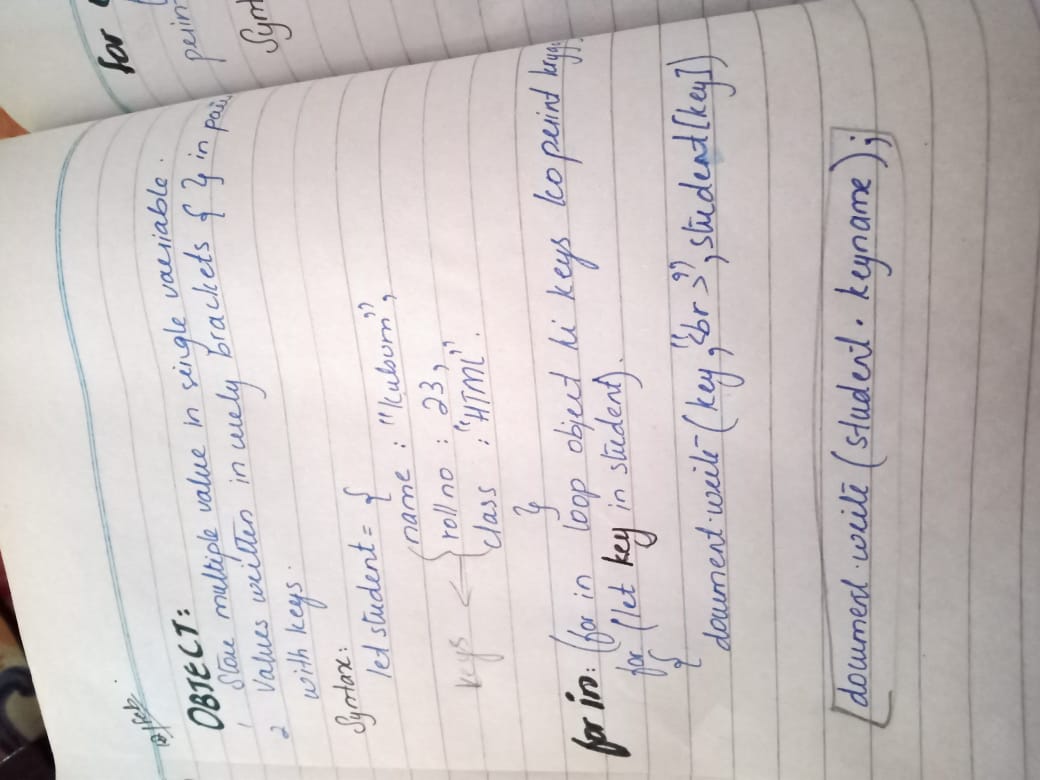 for
perin
Synt
OBJECT:
1 Store multiple value in single variable.
2 Values written in curly brackets { } in pair
with keys.
Syntax:
let student = {
name : "kulsum",
roll no : 23,
class : "HTML".
keys
}
for in: (for in loop object ki keys ko perint
for (let key in student)
{
document.write (key,"<br>", student[key])
document.write (student.keyname);